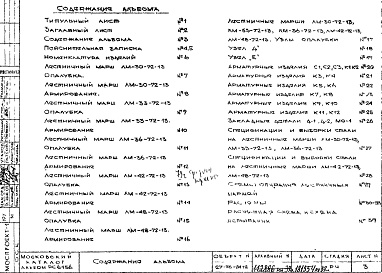 Содержание альбома
Титульный лист №1
Заглавный лист №2
Содержание альбома №3
Пояснительная записка №4,5
Номенклатура изделий №6
Лестничный марш ЛМ-30-72-13.
Опалубка. №7
Лестничный марш ЛМ-30-72-13.
Армирование. №8
Лестничный марш ЛМ-33-72-13
Опалубка. №9
Лестничный марш ЛМ-33-72-13.
Армирование №10
Лестничный марш ЛМ-36-72-13.
Опалубка №11
Лестничный марш ЛМ-36-72-13.
Армирование №12
Лестничный марш ЛМ-42-72-13.
Опалубка №13
Лестничный марш ЛМ-42-72-13.
Армирование №14
Лестничный марш ЛМ-48-72-13.
Опалубка №15
Лестничный марш ЛМ-48-72-13.
Армирование №16
Лестничные марши ЛМ-30-72-13,
ЛМ-33-72-13, ЛМ-36-72-13, ЛМ-42-72-13,
ЛМ-48-72-13. Узлы опалубки №17
Узел „Д" №18
Узел „Е" №19
Арматурные изделия С1, С2, С3, К1, К2 №20
Арматурные изделия К3, К4 №21
Арматурные изделия К5, К6 №22
Арматурные изделия К7, К8 №23
Арматурные изделия К9, К10 №24
Арматурные изделия К11, К12 №25
Закладные детали №26
Спецификации и выборки стали
на лестничные марши ЛМ-30-72-13,
ЛМ-33-72-13, ЛМ-36-72-13. №27
Спецификации и выборки стали
на лестничные марши ЛМ-42-72-13,
ЛМ-48-72-13 №28
Схемы опирания лестничных
маршей
Расчетная схема и схема
испытания
Московский
каталог
Содержание альбома
Объект №
Архивный №
Дата
Стадия
Лист №
РЧ
3
Моспроект-1